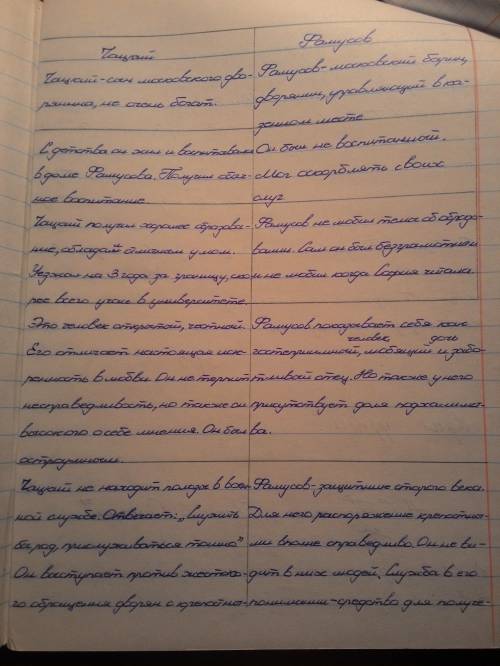 Чацкий
Фамусов
Чацкий - сын московского дво-
рянина, не очень богат.
Фамусов - московский барин,
дворянин, управляющий в ка-
зенном месте
С детства он жил и воспитывался
в доме Фамусова. Получил
ное воспитание
Он был не воспитанный.
Мог оскорблять своих
слуг
Чацкий получил хорошее образова-
ние, обладает отличным умом.
Уезжал на 3 года за границу, ско-
рее всего учился в университете.
Фамусов не любил тема об образо-
вании. Сам он был безграмотным
и не любил когда София читала
Это человек открытый, честный.
Его отличает настоящая иск-
ренность в любви. Он не терпит
несправедливость, но также он
высокого о себе мнения. Он был
остроумным.
Фамусов показывает себя как
гостеприимный человек, любящий дочь и забо-
тливый отец. Но также у него
присутствует доля подхалимст-
ва.
Чацкий не находит пользы в воен-
ной службе. Отвечает: "Служить
бы рад, прислуживаться тошно"
Он выступает против жестоко-
го обращения дворян с крепостны-
Фамусов - защитник старого века
Для него распоряжение крепостны-
ми вполне справедливо. Он не ви-
дит в них людей. Служба в его
понимании - средство для получе-